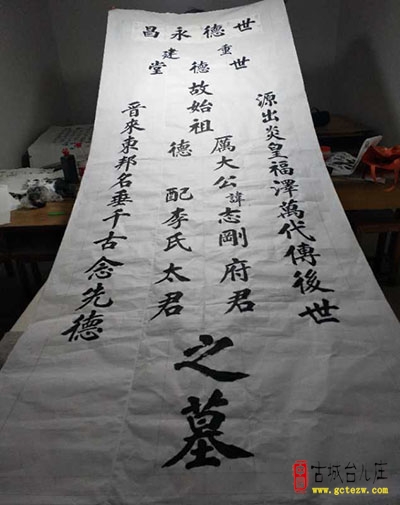 世德永昌
世德堂
重建
源出炎皇福澤萬代傳後世
故始祖
厲大公諱志剛府君
德配李氏太君
之墓
晉來東邦名垂千古念先德
古城台儿庄
www.gctezw.com